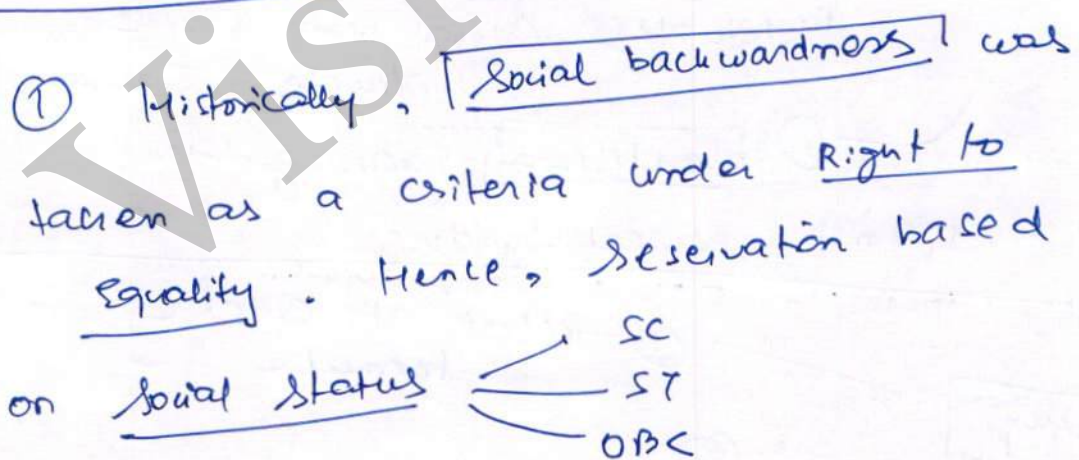 ① Historically, Social backwardness was
taken as a criteria under Right to
Equality. Hence, reservation based
SC
on Social Status ST
OBC